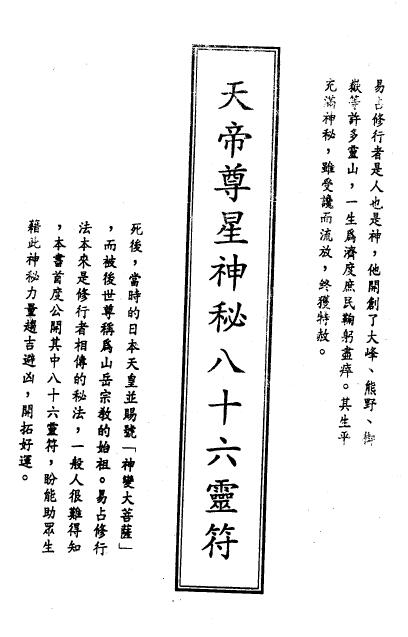 易占修行者是人也是神，他開創了大峰、熊野、御
嶽等許多靈山，一生爲濟度庶民鞠躬盡瘁。其生平
充滿神秘，雖受讒而流放，終獲特赦。
天帝尊星神秘八十六靈符
死後，當時的日本天皇並賜號「神變大菩薩」
，而被後世尊稱爲山岳宗教的始祖。易占修行
法本來是修行者相傳的秘法，一般人很難得知
，本書首度公開其中八十六靈符，盼能助眾生
藉此神秘力量趨吉避凶，開拓好運。